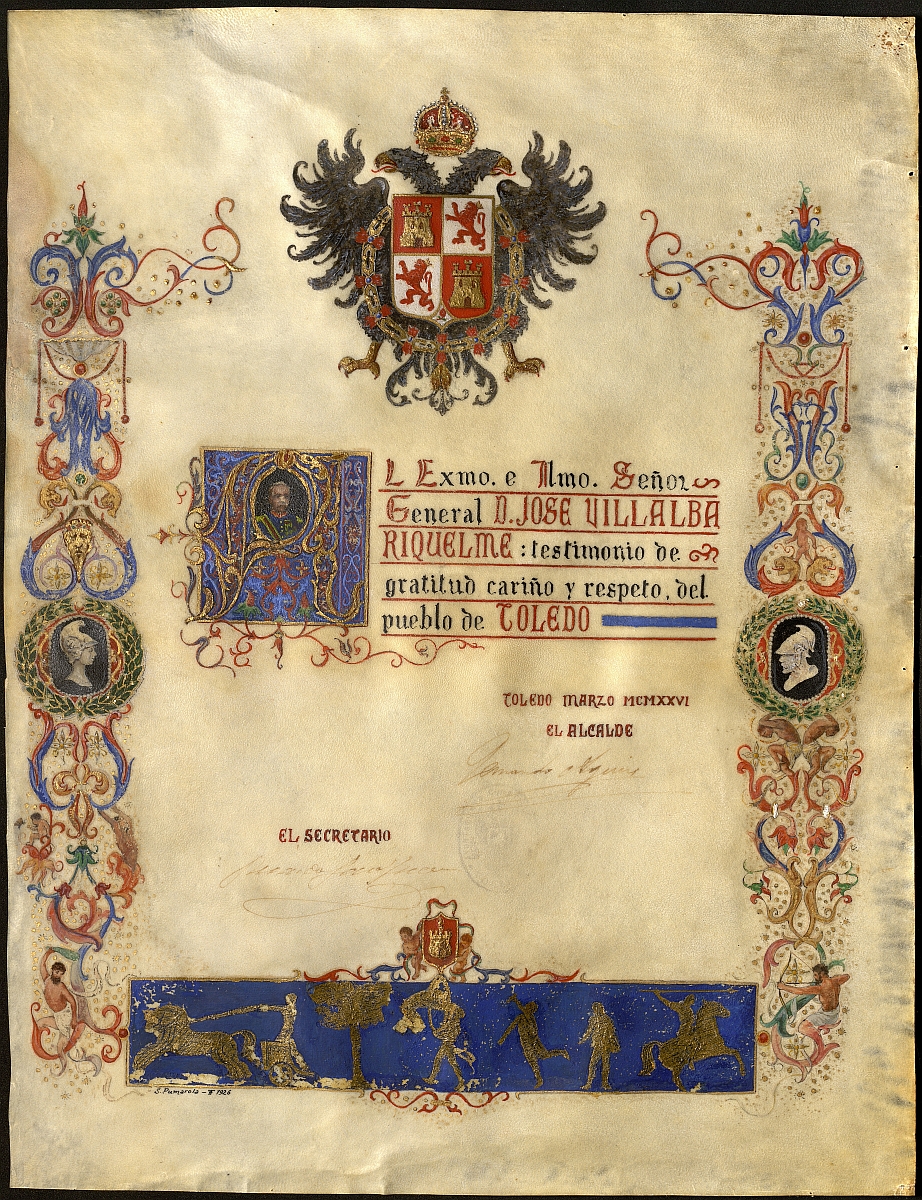 AL Exmo. e Ilmo. Señor
General D. JOSE VILLALBA
RIQUELME : testimonio de
gratitud cariño y respeto, del
pueblo de TOLEDO
TOLEDO MARZO MCMXXVI
EL ALCALDE
EL SECRETARIO
S. Pumarola - 1926